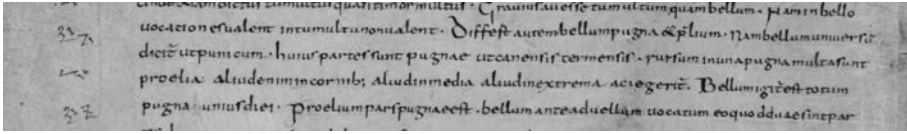 tumultus quasi timor multus · Gravius aū esse tumultum quam bellum · Nam in bello
vocationes valent in tumultu non valent · Differt autem bellum pugna & p̄lium · Nam bellum universū
dicit̄ ut punicum · huius partes sunt pugnae ut canensis termensis · rursum in una pugna multa sunt
proelia aliud enim in cornib; aliud in media aliud in extrema acie gerit̄ · Bellum igit̄ est totum
pugna unius diei · Proelium pars pugnae est · bellum antea duellum vocatum eo quod duae sint par